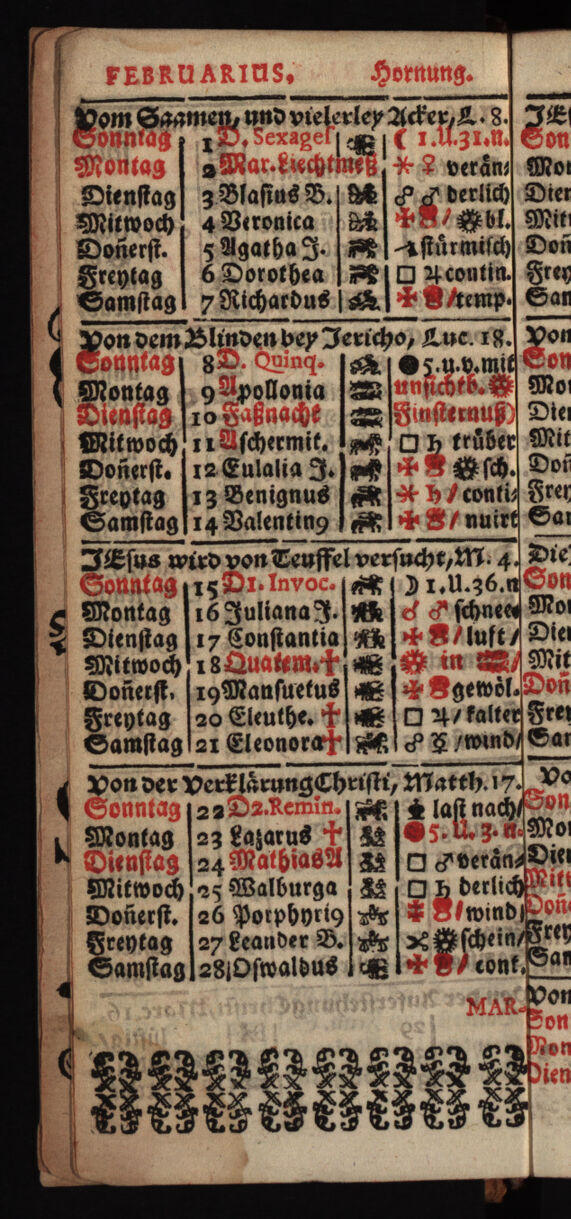 FEBRUARIUS. Hornung.
Vom Saamen, und vielerley Acker, L. 8.
Sonntag 1 D. Sexages ☾ 1.U.31.n.
Montag 2 Mar. Liechtmeß ⚹ ♀ verän⸗
Dienstag 3 Blasius B. ☍ ♂ derlich
Mitwoch 4 Veronica bl.
Don̄erst. 5 Agatha J. stürmisch
Freytag 6 Dorothea □ ♃ contin.
Samstag 7 Richardus /temp.
Von dem Blinden bey Jericho, Luc. 18.
Sonntag 8 D. Quinq. ● 5.u.v.mit
Montag 9 Apollonia unsichtb.
Dienstag 10 Faßnacht Finsternuß)
Mitwoch 11 Aschermit. □ ♄ trüber
Don̄erst. 12 Eulalia J. sch.
Freytag 13 Benignus ⚹ ♄ / conti⸗
Samstag 14 Valentin9 / nuirt
JEsus wird von Teuffel versucht, M. 4.
Sonntag 15 D1. Invoc. ☽ 1.U.36.n
Montag 16 Juliana J. ☌ ♂ schnee
Dienstag 17 Constantia / luft /
Mitwoch 18 Quatem. ✝ in /
Don̄erst. 19 Mansuetus gewöl.
Freytag 20 Eleuthe. ✝ □ ♃ / kalter
Samstag 21 Eleonora ✝ ☍ ☿ /wind/
Von der Verklärung Christi, Matth. 17.
Sonntag 22 D2. Remin. last nach/
Montag 23 Lazarus ✝ 5. U. 3. n.
Dienstag 24 Mathias A □ ♂ verän⸗
Mitwoch 25 Walburga □ ♄ derlich
Don̄erst. 26 Porphyri9 /wind/
Freytag 27 Leander B. schein/
Samstag 28 Oswaldus / cont.
MAR-